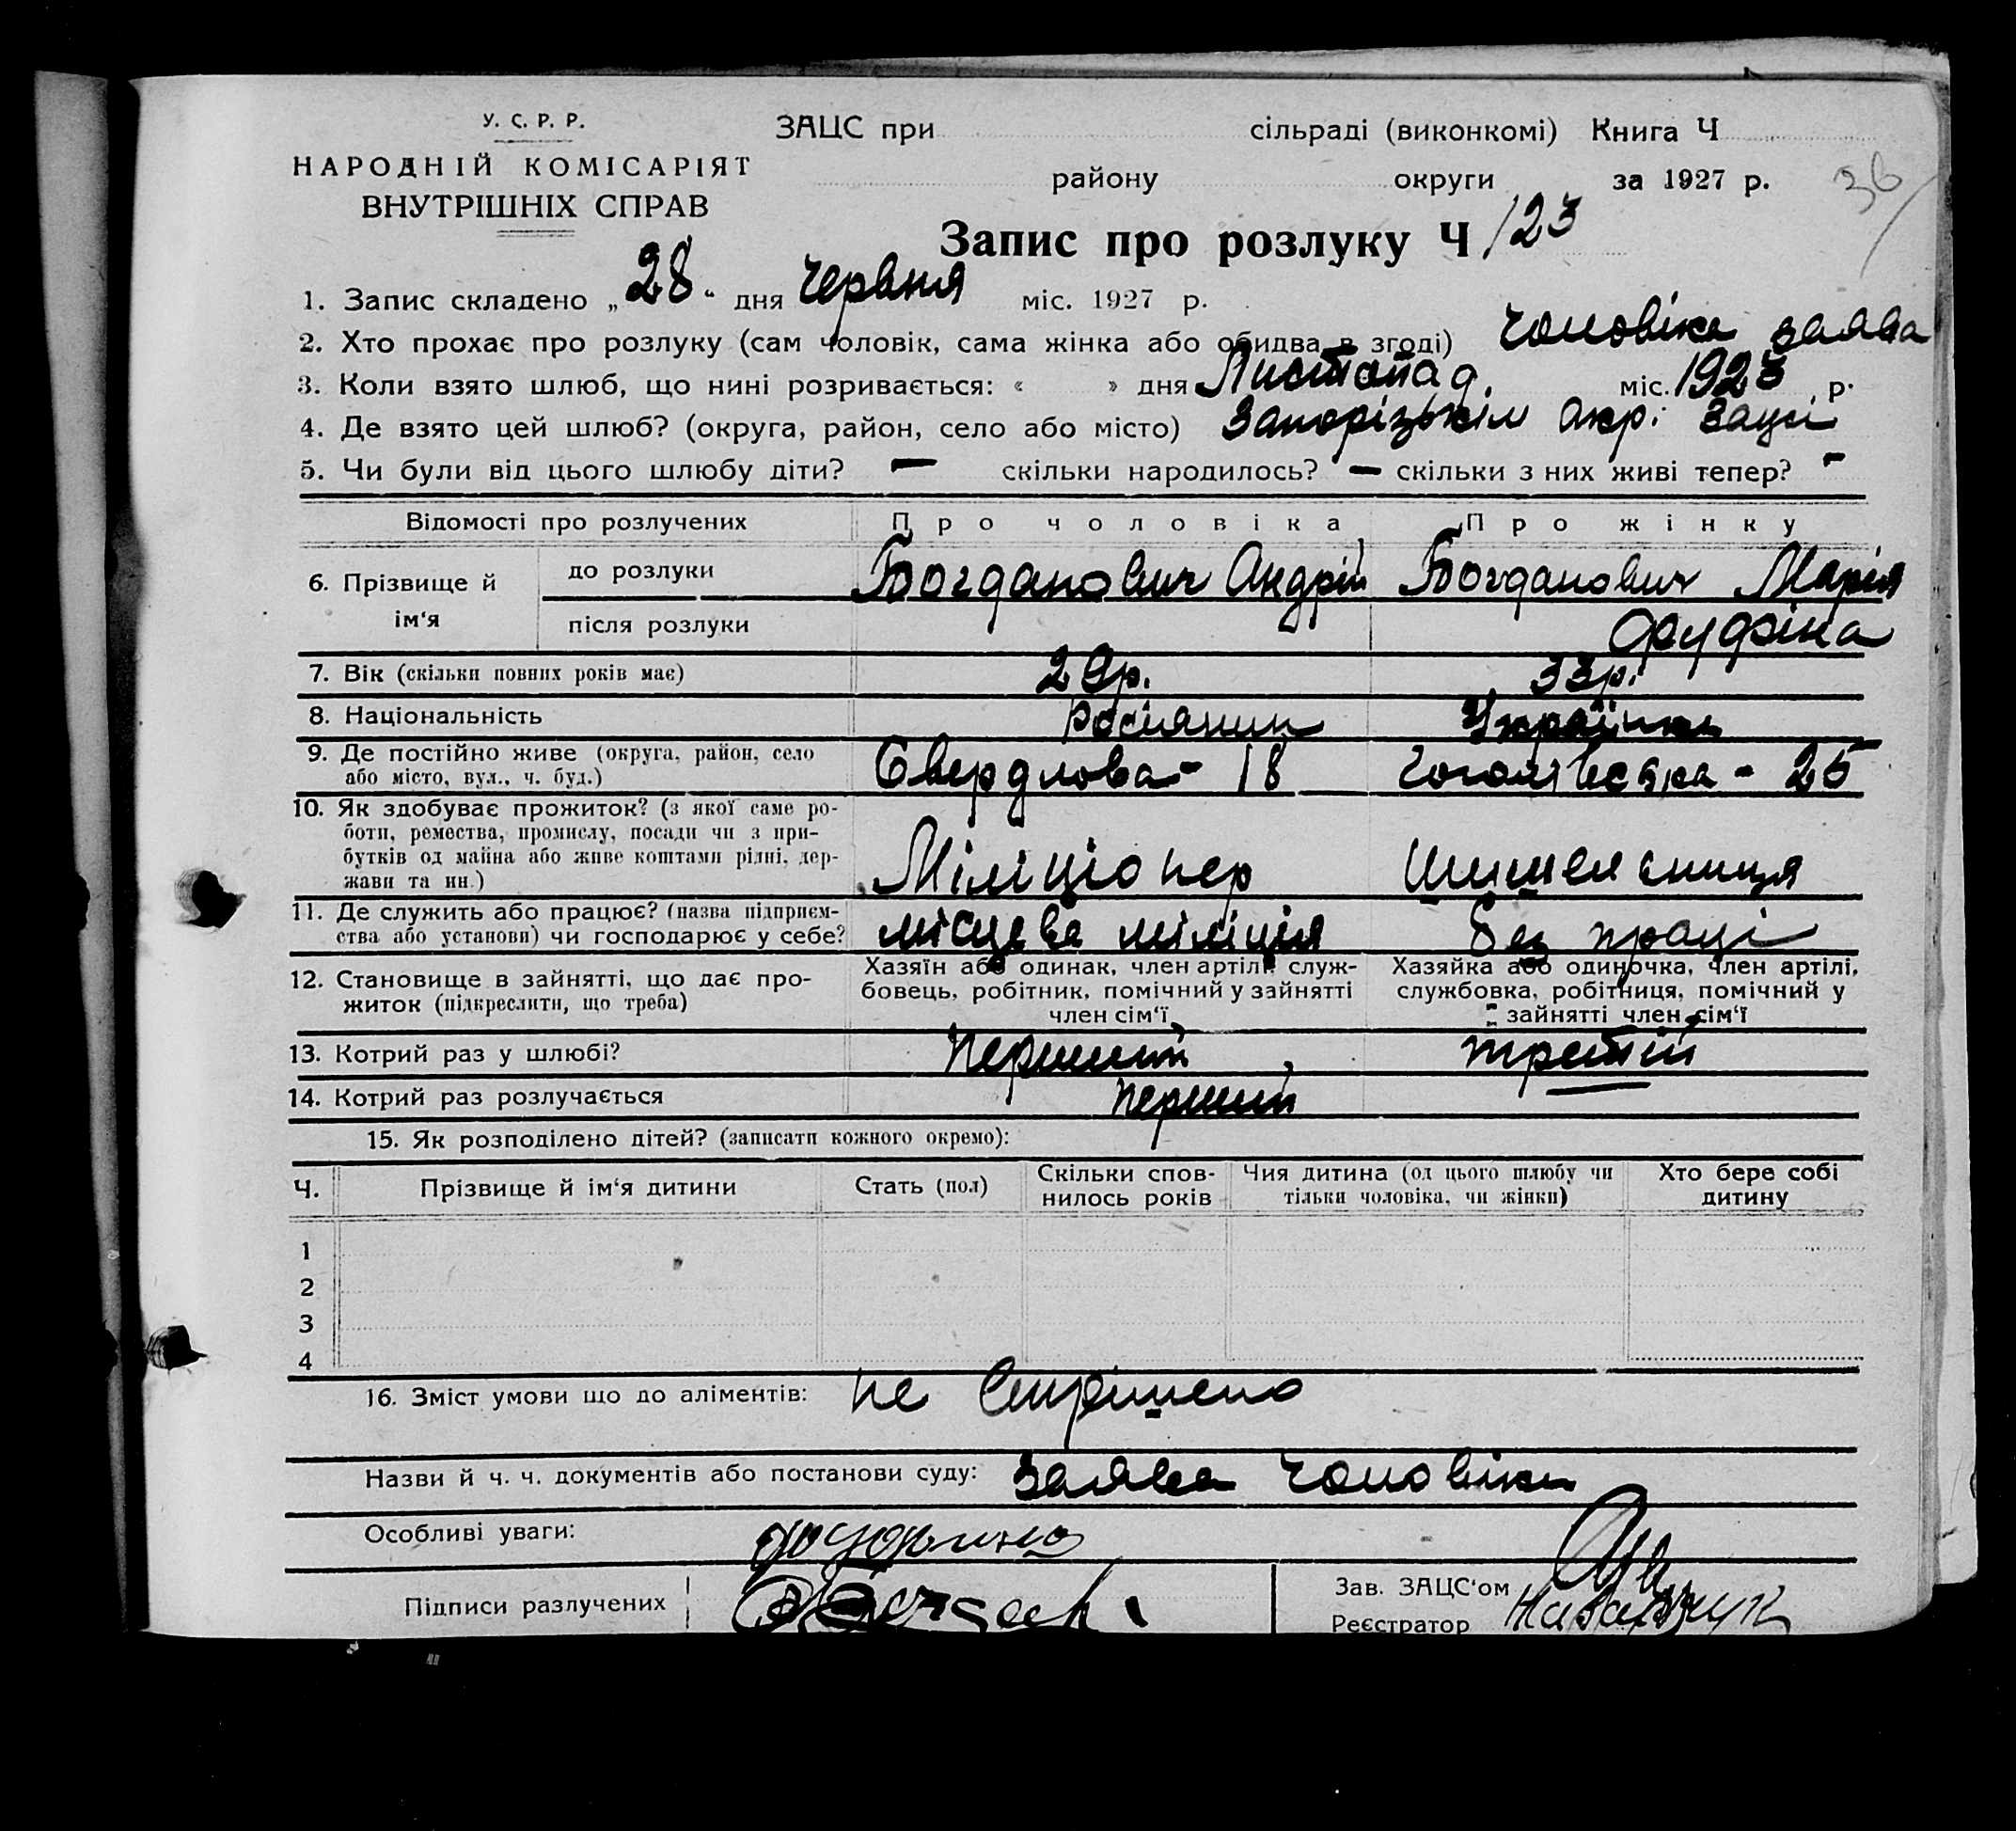 У. С. Р. Р.
НАРОДНІЙ КОМІСАРІЯТ
ВНУТРІШНІХ СПРАВ
ЗАЦС при сільраді (виконкомі) Книга Ч
району округи за 1927 р.
36
Запис про розлуку Ч 123
1. Запис складено „28“ дня червня міс. 1927 р.
2. Хто прохає про розлуку (сам чоловік, сама жінка або обидва в згоді) чоловіка заява
3. Коли взято шлюб, що нині розривається: « » дня Листопад. міс. 1923 р.
4. Де взято цей шлюб? (округа, район, село або місто) Запорізькім окр. Зацсі
5. Чи були від цього шлюбу діти? — скільки народилось? — скільки з них живі тепер? -
Відомості про розлучених Про чоловіка Про жінку
6. Прізвище й ім‘я
до розлуки Богданович Андрій Богданович Марія
після розлуки
7. Вік (скільки повних років має) 29р. 33р.
8. Національність росіянин Українка
9. Де постійно живе (округа, район, село або місто, вул., ч. буд.) Свердлова - 18 - 25
10. Як здобуває прожиток? (з якої саме ро-
боти, ремества, промислу, посади чи з при-
бутків од майна або живе коштами рідні, дер-
жави та ин.) Міліціонер
11. Де служить або працює? (назва підприєм-
ства або установи) чи господарює у себе? місцева міліція без праці
12. Становище в зайнятті, що дає про-
житок (підкреслити, що треба)
Хазяїн або одинак, член артілі, служ-
бовець, робітник, помічний у зайнятті
член сім‘ї
Хазяйка або одиночка, член артілі,
службовка, робітниця, помічний у
зайнятті член сім‘ї
13. Котрий раз у шлюбі? перший третій
14. Котрий раз розлучається перший
15. Як розподілено дітей? (записати кожного окремо):
Ч. Прізвище й ім‘я дитини Стать (пол) Скільки спов-
нилось років Чия дитина (од цього шлюбу чи
тільки чоловіка, чи жінки) Хто бере собі
дитину
1
2
3
4
16. Зміст умови що до аліментів: не вирішено
Назви й ч. ч. документів або постанови суду: Заява чоловіка
Особливі уваги:
Підписи разлучених
Зав. ЗАЦС‘ом
Реєстратор